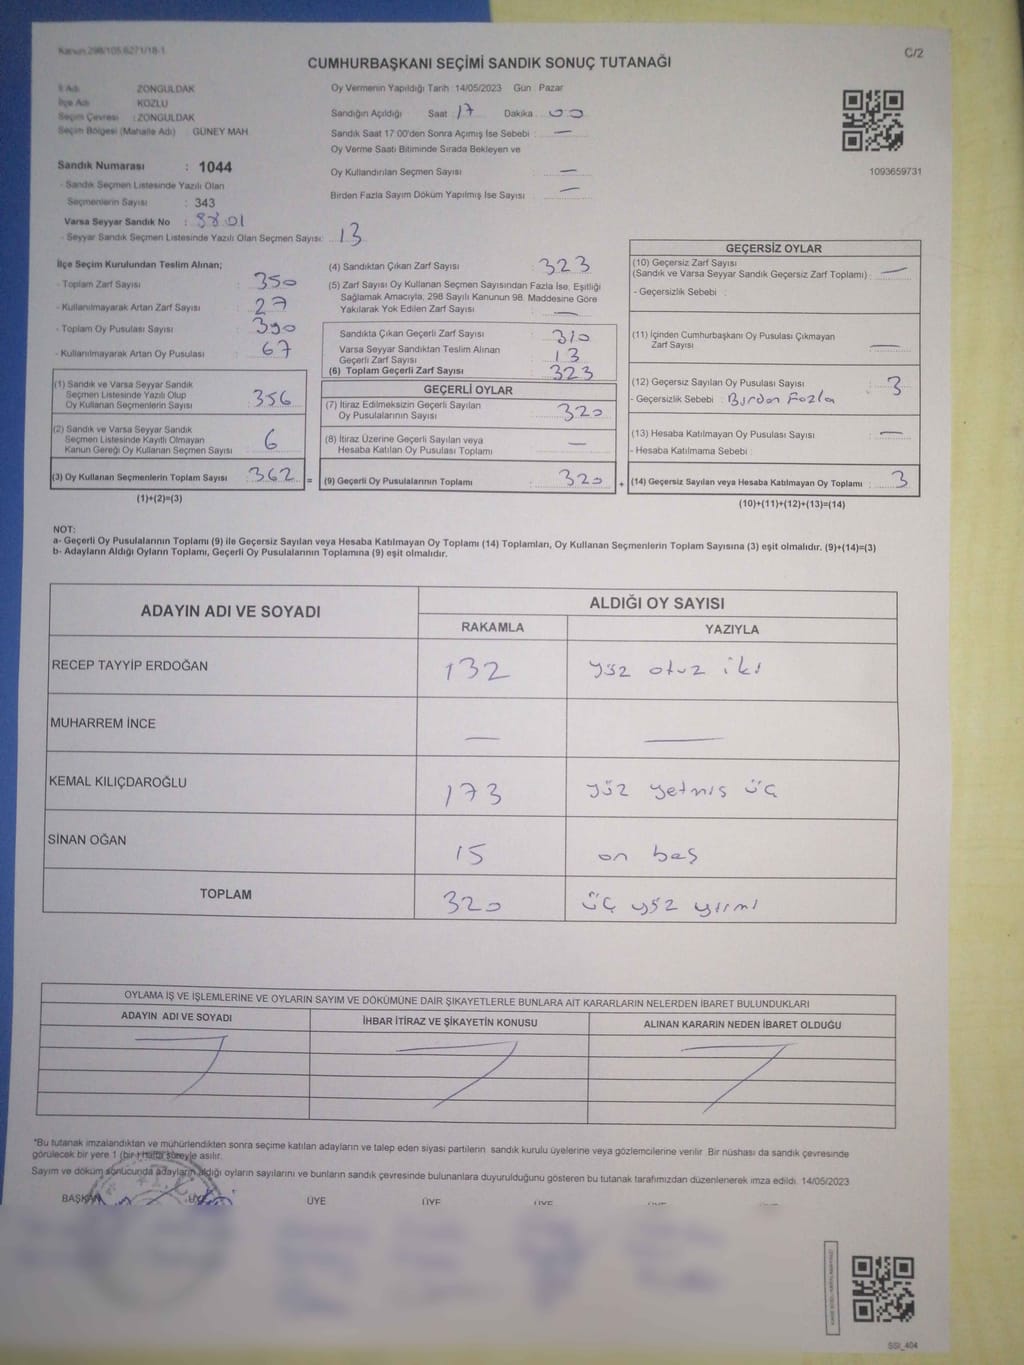 Kanun 298/105 6271/18-1
C/2
CUMHURBAŞKANI SEÇİMİ SANDIK SONUÇ TUTANAĞI
İl Adı ZONGULDAK
İlçe Adı KOZLU
Seçim Çevresi : ZONGULDAK
Seçim Bölgesi (Mahalle Adı) GÜNEY MAH.
Oy Vermenin Yapıldığı Tarih 14/05/2023 Gün Pazar
Sandığın Açıldığı Saat 17 Dakika 00
Sandık Saat 17:00'den Sonra Açılmış İse Sebebi : —
Oy Verme Saati Bitiminde Sırada Bekleyen ve
Oy Kullandırılan Seçmen Sayısı —
Birden Fazla Sayım Döküm Yapılmış İse Sayısı —
1093659731
Sandık Numarası : 1044
- Sandık Seçmen Listesinde Yazılı Olan
Seçmenlerin Sayısı : 343
Varsa Seyyar Sandık No :
- Seyyar Sandık Seçmen Listesinde Yazılı Olan Seçmen Sayısı: 13
İlçe Seçim Kurulundan Teslim Alınan;
- Toplam Zarf Sayısı : 350
- Kullanılmayarak Artan Zarf Sayısı : 27
- Toplam Oy Pusulası Sayısı : 390
- Kullanılmayarak Artan Oy Pusulası : 67
(1) Sandık ve Varsa Seyyar Sandık
Seçmen Listesinde Yazılı Olup
Oy Kullanan Seçmenlerin Sayısı 356
(2) Sandık ve Varsa Seyyar Sandık
Seçmen Listesinde Kayıtlı Olmayan
Kanun Gereği Oy Kullanan Seçmen Sayısı 6
(3) Oy Kullanan Seçmenlerin Toplam Sayısı : 362 =
(1)+(2)=(3)
(4) Sandıktan Çıkan Zarf Sayısı : 323
(5) Zarf Sayısı Oy Kullanan Seçmen Sayısından Fazla İse, Eşitliği
Sağlamak Amacıyla, 298 Sayılı Kanunun 98. Maddesine Göre
Yakılarak Yok Edilen Zarf Sayısı : —
Sandıkta Çıkan Geçerli Zarf Sayısı : 310
Varsa Seyyar Sandıktan Teslim Alınan
Geçerli Zarf Sayısı : 13
(6) Toplam Geçerli Zarf Sayısı : 323
GEÇERLİ OYLAR
(7) İtiraz Edilmeksizin Geçerli Sayılan
Oy Pusulalarının Sayısı : 320
(8) İtiraz Üzerine Geçerli Sayılan veya
Hesaba Katılan Oy Pusulası Toplamı : —
(9) Geçerli Oy Pusulalarının Toplamı : 320 +
GEÇERSİZ OYLAR
(10) Geçersiz Zarf Sayısı
(Sandık ve Varsa Seyyar Sandık Geçersiz Zarf Toplamı) : —
- Geçersizlik Sebebi :
(11) İçinden Cumhurbaşkanı Oy Pusulası Çıkmayan
Zarf Sayısı : —
(12) Geçersiz Sayılan Oy Pusulası Sayısı : 3
- Geçersizlik Sebebi : Birden Fazla
(13) Hesaba Katılmayan Oy Pusulası Sayısı : —
- Hesaba Katılmama Sebebi :
(14) Geçersiz Sayılan veya Hesaba Katılmayan Oy Toplamı : 3
(10)+(11)+(12)+(13)=(14)
NOT:
a- Geçerli Oy Pusulalarının Toplamı (9) ile Geçersiz Sayılan veya Hesaba Katılmayan Oy Toplamı (14) Toplamları, Oy Kullanan Seçmenlerin Toplam Sayısına (3) eşit olmalıdır. (9)+(14)=(3)
b- Adayların Aldığı Oyların Toplamı, Geçerli Oy Pusulalarının Toplamına (9) eşit olmalıdır.
ADAYIN ADI VE SOYADI ALDIĞI OY SAYISI
RAKAMLA YAZIYLA
RECEP TAYYİP ERDOĞAN 132 yüz otuz iki
MUHARREM İNCE — —
KEMAL KILIÇDAROĞLU 173 yüz yetmiş üç
SİNAN OĞAN 15 on beş
TOPLAM 320 üç yüz yirmi
OYLAMA İŞ VE İŞLEMLERİNE VE OYLARIN SAYIM VE DÖKÜMÜNE DAİR ŞİKAYETLERLE BUNLARA AİT KARARLARIN NELERDEN İBARET BULUNDUKLARI
ADAYIN ADI VE SOYADI İHBAR İTİRAZ VE ŞİKAYETİN KONUSU ALINAN KARARIN NEDEN İBARET OLDUĞU
*Bu tutanak imzalandıktan ve mühürlendikten sonra seçime katılan adayların ve talep eden siyasi partilerin sandık kurulu üyelerine veya gözlemcilerine verilir. Bir nüshası da sandık çevresinde
görülecek bir yere 1 (bir) hafta süreyle asılır.
Sayım ve döküm sonucunda adayların aldığı oyların sayılarını ve bunların sandık çevresinde bulunanlara duyurulduğunu gösteren bu tutanak tarafımızdan düzenlenerek imza edildi. 14/05/2023
BAŞKAN ÜYE ÜYE ÜYE ÜYE
SSI_404